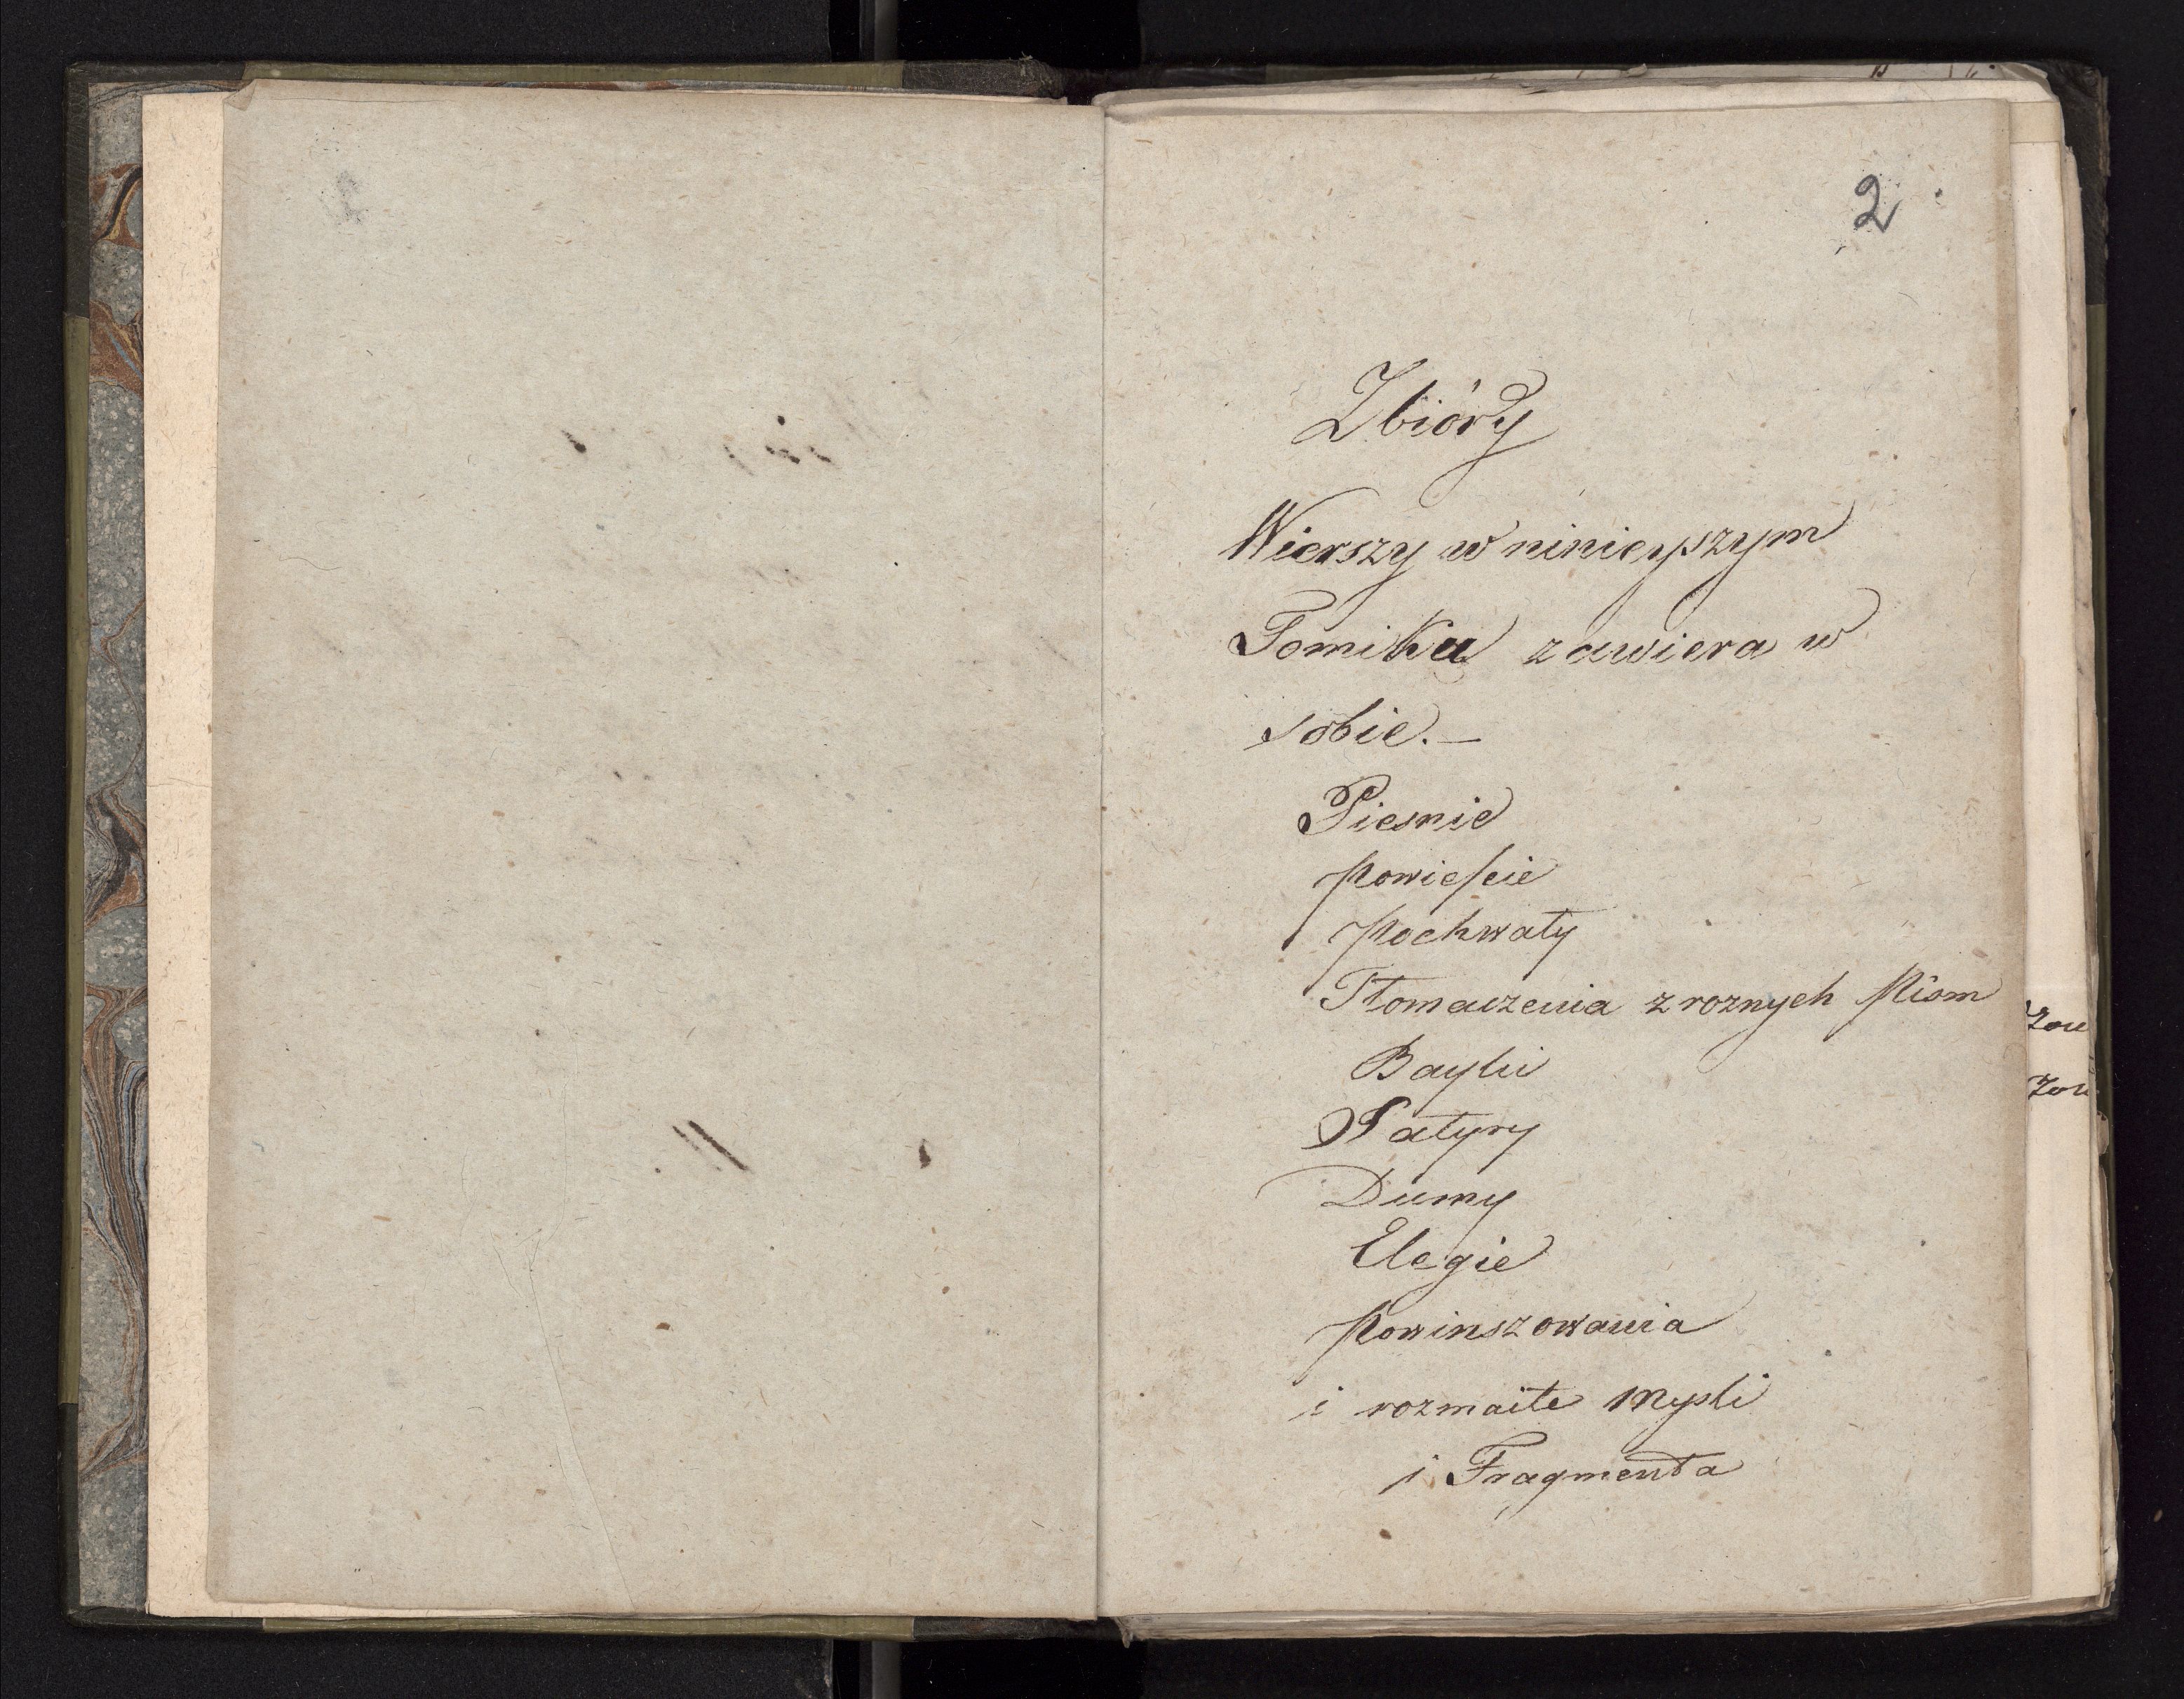 2
Zbióry
Wierszy w ninieyszym
Tomiku zawiera w
sobie. —
Piesnie
Powieſcie
Pochwały
Tłomaczenia z roznych Pism
Bayki
Satyry
Dumy
Elegie
Powinszowania
i rozmaite Mysli
i Fragmenta